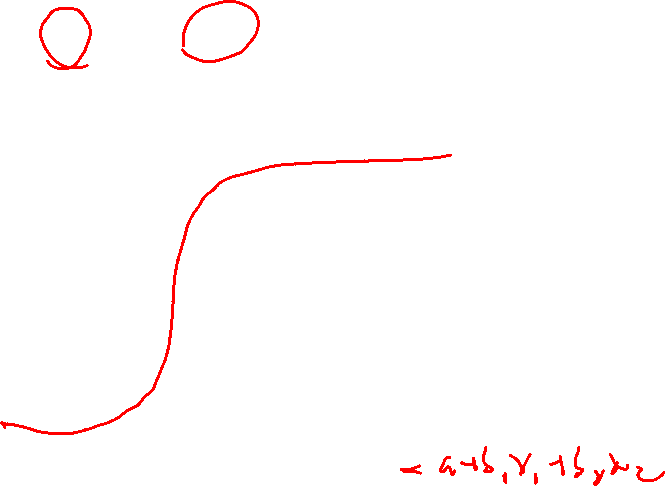 - a+b₁x₁+b₂x₂